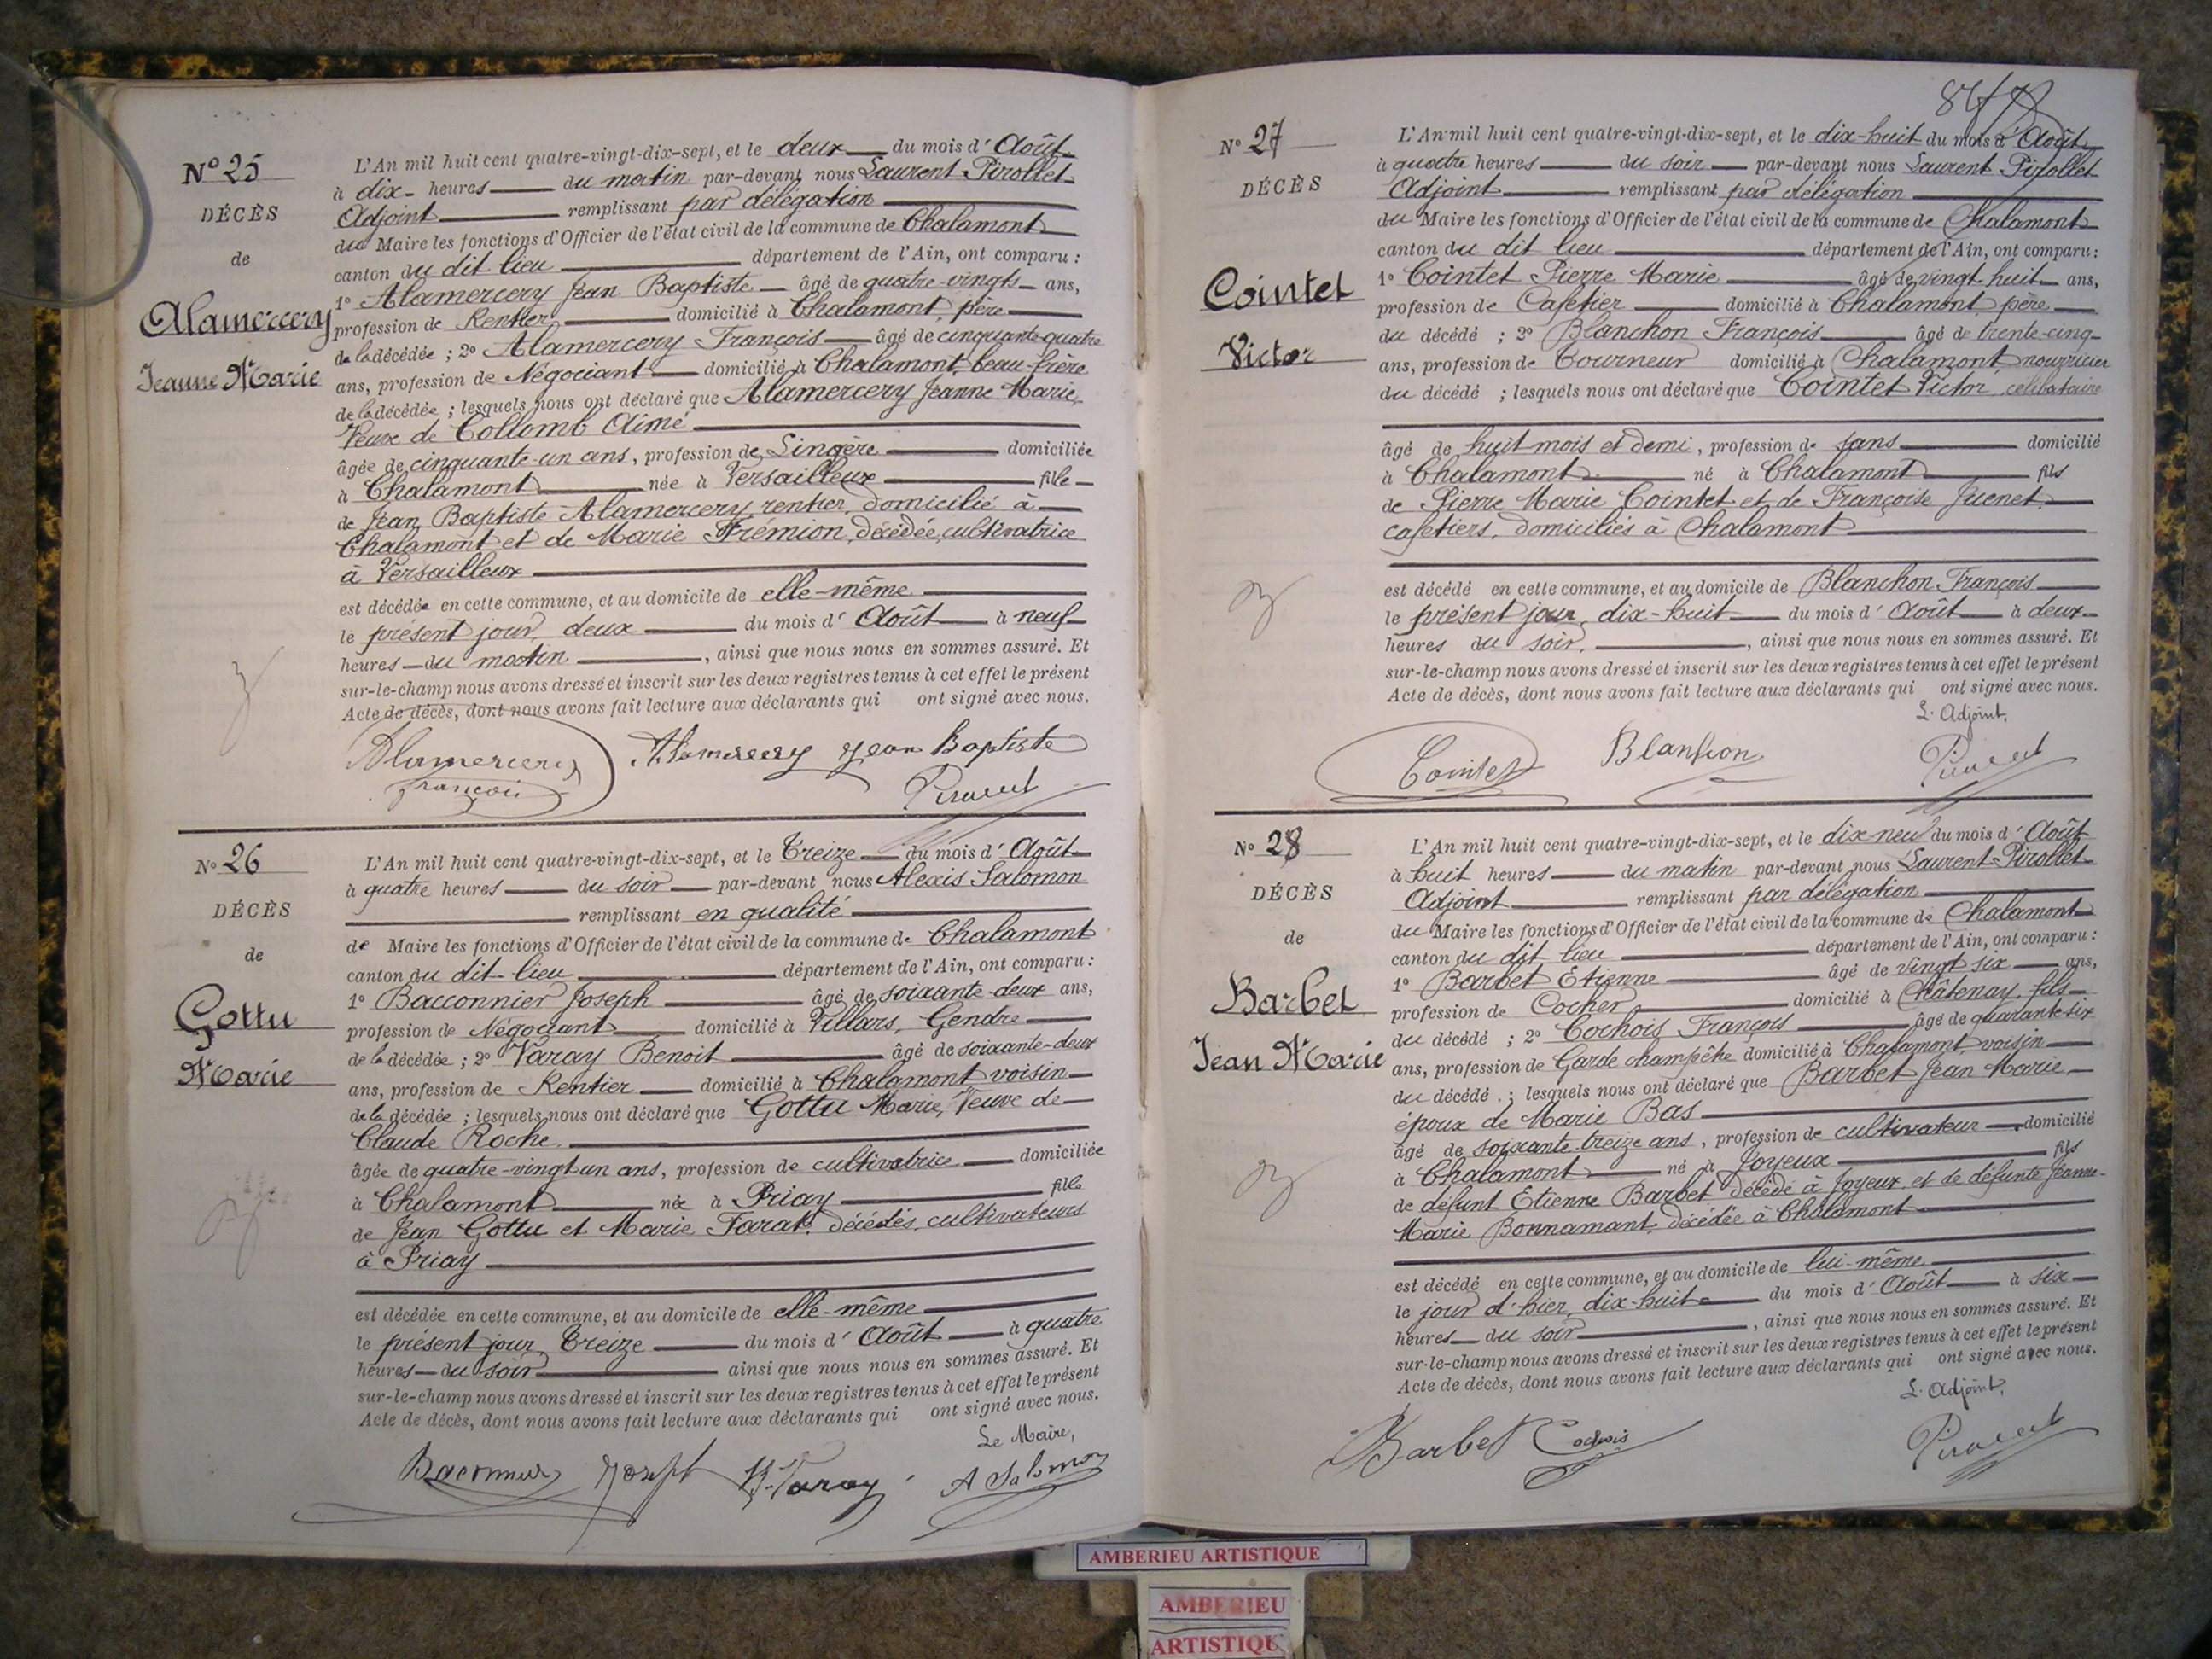 N° 25
DÉCÈS
de
Alamercery
Jeanne Marie
L'An mil huit cent quatre-vingt-dix-sept, et le deux du mois d'Août
à dix heures du matin par-devant nous Laurent Pirollet
Adjoint remplissant par délégation
du Maire les fonctions d'Officier de l'état civil de la commune de Chalamont
canton du dit lieu département de l'Ain, ont comparu :
1° Alamercery Jean Baptiste âgé de quatre-vingts ans,
profession de Rentier domicilié à Chalamont, père
de la décédée ; 2° Alamercery François âgé de cinquante-quatre
ans, profession de Négociant domicilié à Chalamont, beau-frère
de la décédée ; lesquels nous ont déclaré que Alamercery Jeanne Marie,
Veuve de Collomb Aimé
âgée de cinquante-un ans, profession de Lingère domiciliée
à Chalamont née à Versailleux fille
de Jean Baptiste Alamercery, rentier, domicilié à
Chalamont et de Marie Frémion, décédée, cultivatrice
à Versailleux
est décédée en cette commune, et au domicile de elle-même
le présent jour, deux du mois d'Août à neuf
heures du matin, ainsi que nous nous en sommes assuré. Et
sur-le-champ nous avons dressé et inscrit sur les deux registres tenus à cet effet le présent
Acte de décès, dont nous avons fait lecture aux déclarants qui ont signé avec nous.
Alamercery Alamercery Jean Baptiste
François
N° 26
DÉCÈS
de
Gottu
Marie
L'An mil huit cent quatre-vingt-dix-sept, et le Treize du mois d'Août
à quatre heures du soir par-devant nous Alexis Salomon
remplissant en qualité
de Maire les fonctions d'Officier de l'état civil de la commune de Chalamont
canton du dit-lieu département de l'Ain, ont comparu :
1° Bacconnier Joseph âgé de soixante-deux ans,
profession de Négociant domicilié à Villars, Gendre
de la décédée ; 2° Varay Benoit âgé de soixante-deux
ans, profession de Rentier domicilié à Chalamont voisin
de la décédée ; lesquels nous ont déclaré que Gottu Marie, Veuve de
Claude Roche.
âgée de quatre-vingt un ans, profession de cultivatrice domiciliée
à Chalamont née à Priay fille
de Jean Gottu et Marie Farat, décédés, cultivateurs
à Priay
est décédée en cette commune, et au domicile de elle-même
le présent jour Treize du mois d'Août à quatre
heures du soir ainsi que nous nous en sommes assuré. Et
sur-le-champ nous avons dressé et inscrit sur les deux registres tenus à cet effet le présent
Acte de décès, dont nous avons fait lecture aux déclarants qui ont signé avec nous.
Le Maire,
Joseph B. Varay A Salomon
N° 27
DÉCÈS
Cointet
Victor
L'An mil huit cent quatre-vingt-dix-sept, et le dix-huit du mois d'Août
à quatre heures du soir par-devant nous Laurent Pirollet
Adjoint remplissant par délégation
du Maire les fonctions d'Officier de l'état civil de la commune de Chalamont
canton du dit lieu département de l'Ain, ont comparu :
1° Cointet Pierre Marie âgé de vingt huit ans,
profession de Cafetier domicilié à Chalamont, père
du décédé ; 2° Blanchon François âgé de trente-cinq
ans, profession de Tourneur domicilié à Chalamont, nourricier
du décédé ; lesquels nous ont déclaré que Cointet Victor, célibataire
âgé de huit mois et demi, profession de sans domicilié
à Chalamont né à Chalamont fils
de Pierre Marie Cointet et de Françoise Juenet,
cafetiers, domiciliés à Chalamont
est décédé en cette commune, et au domicile de Blanchon François
le présent jour, dix-huit du mois d'Août à deux
heures du soir, ainsi que nous nous en sommes assuré. Et
sur-le-champ nous avons dressé et inscrit sur les deux registres tenus à cet effet le présent
Acte de décès, dont nous avons fait lecture aux déclarants qui ont signé avec nous.
L. Adjoint,
Cointet Blanchon
N° 28
DÉCÈS
de
Barbet
Jean Marie
L'An mil huit cent quatre-vingt-dix-sept, et le dix neuf du mois d'Août
à huit heures du matin par-devant nous Laurent Pirollet
Adjoint remplissant par délégation
du Maire les fonctions d'Officier de l'état civil de la commune de Chalamont
canton du dit lieu département de l'Ain, ont comparu :
1° Barbet Etienne âgé de vingt six ans,
profession de Cocher domicilié à Châtenay, fils
du décédé ; 2° Cochois François âgé de quarante-six
ans, profession de Garde champêtre domicilié à Chalamont, voisin
du décédé ; lesquels nous ont déclaré que Barbet Jean Marie
époux de Marie Bas
âgé de soixante-treize ans, profession de cultivateur domicilié
à Chalamont né à Joyeux fils
de défunt Etienne Barbet décédé à Joyeux, et de défunte Jeanne-
Marie Bonnamant, décédée à Chalamont
est décédé en cette commune, et au domicile de lui-même
le jour d'hier, dix-huit du mois d'Août à six
heures du soir, ainsi que nous nous en sommes assuré. Et
sur-le-champ nous avons dressé et inscrit sur les deux registres tenus à cet effet le présent
Acte de décès, dont nous avons fait lecture aux déclarants qui ont signé avec nous.
L. Adjoint,
Barbet Cochois
AMBERIEU ARTISTIQUE
AMBERIEU
ARTISTIQU